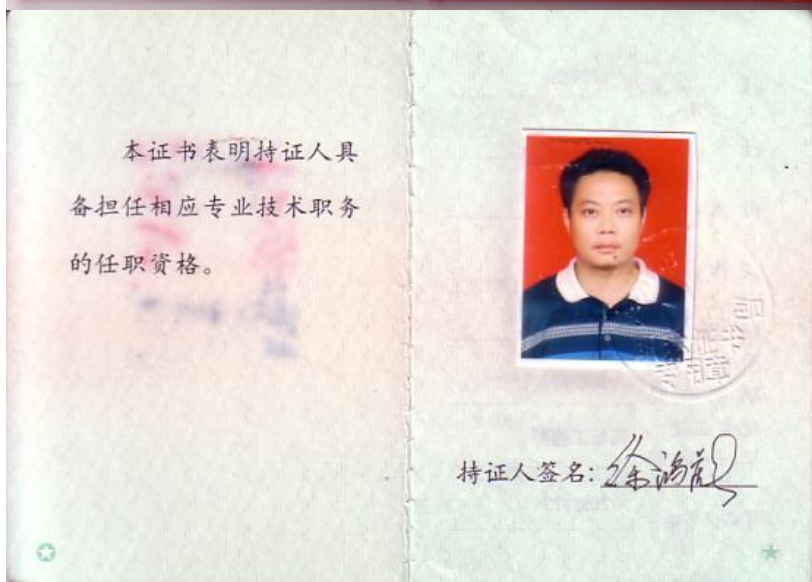 本证书表明持证人具
备担任相应专业技术职务
的任职资格。
持证人签名：徐鸿